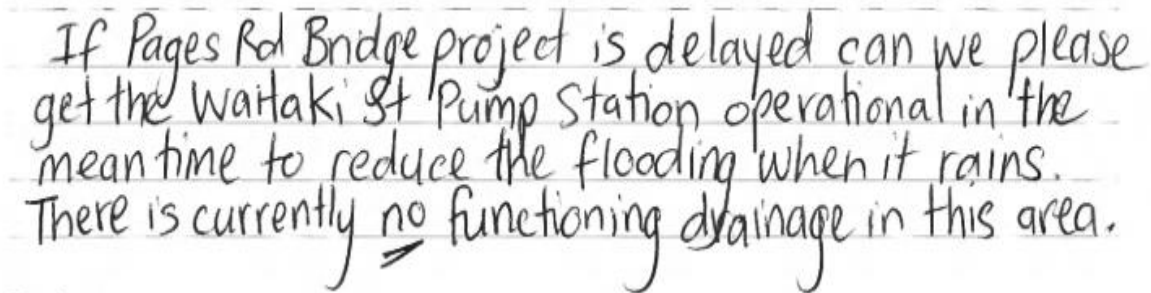 If Pages Rd Bridge project is delayed can we please
get the Waitaki St Pump Station operational in the
meantime to reduce the flooding when it rains.
There is currently no functioning drainage in this area.